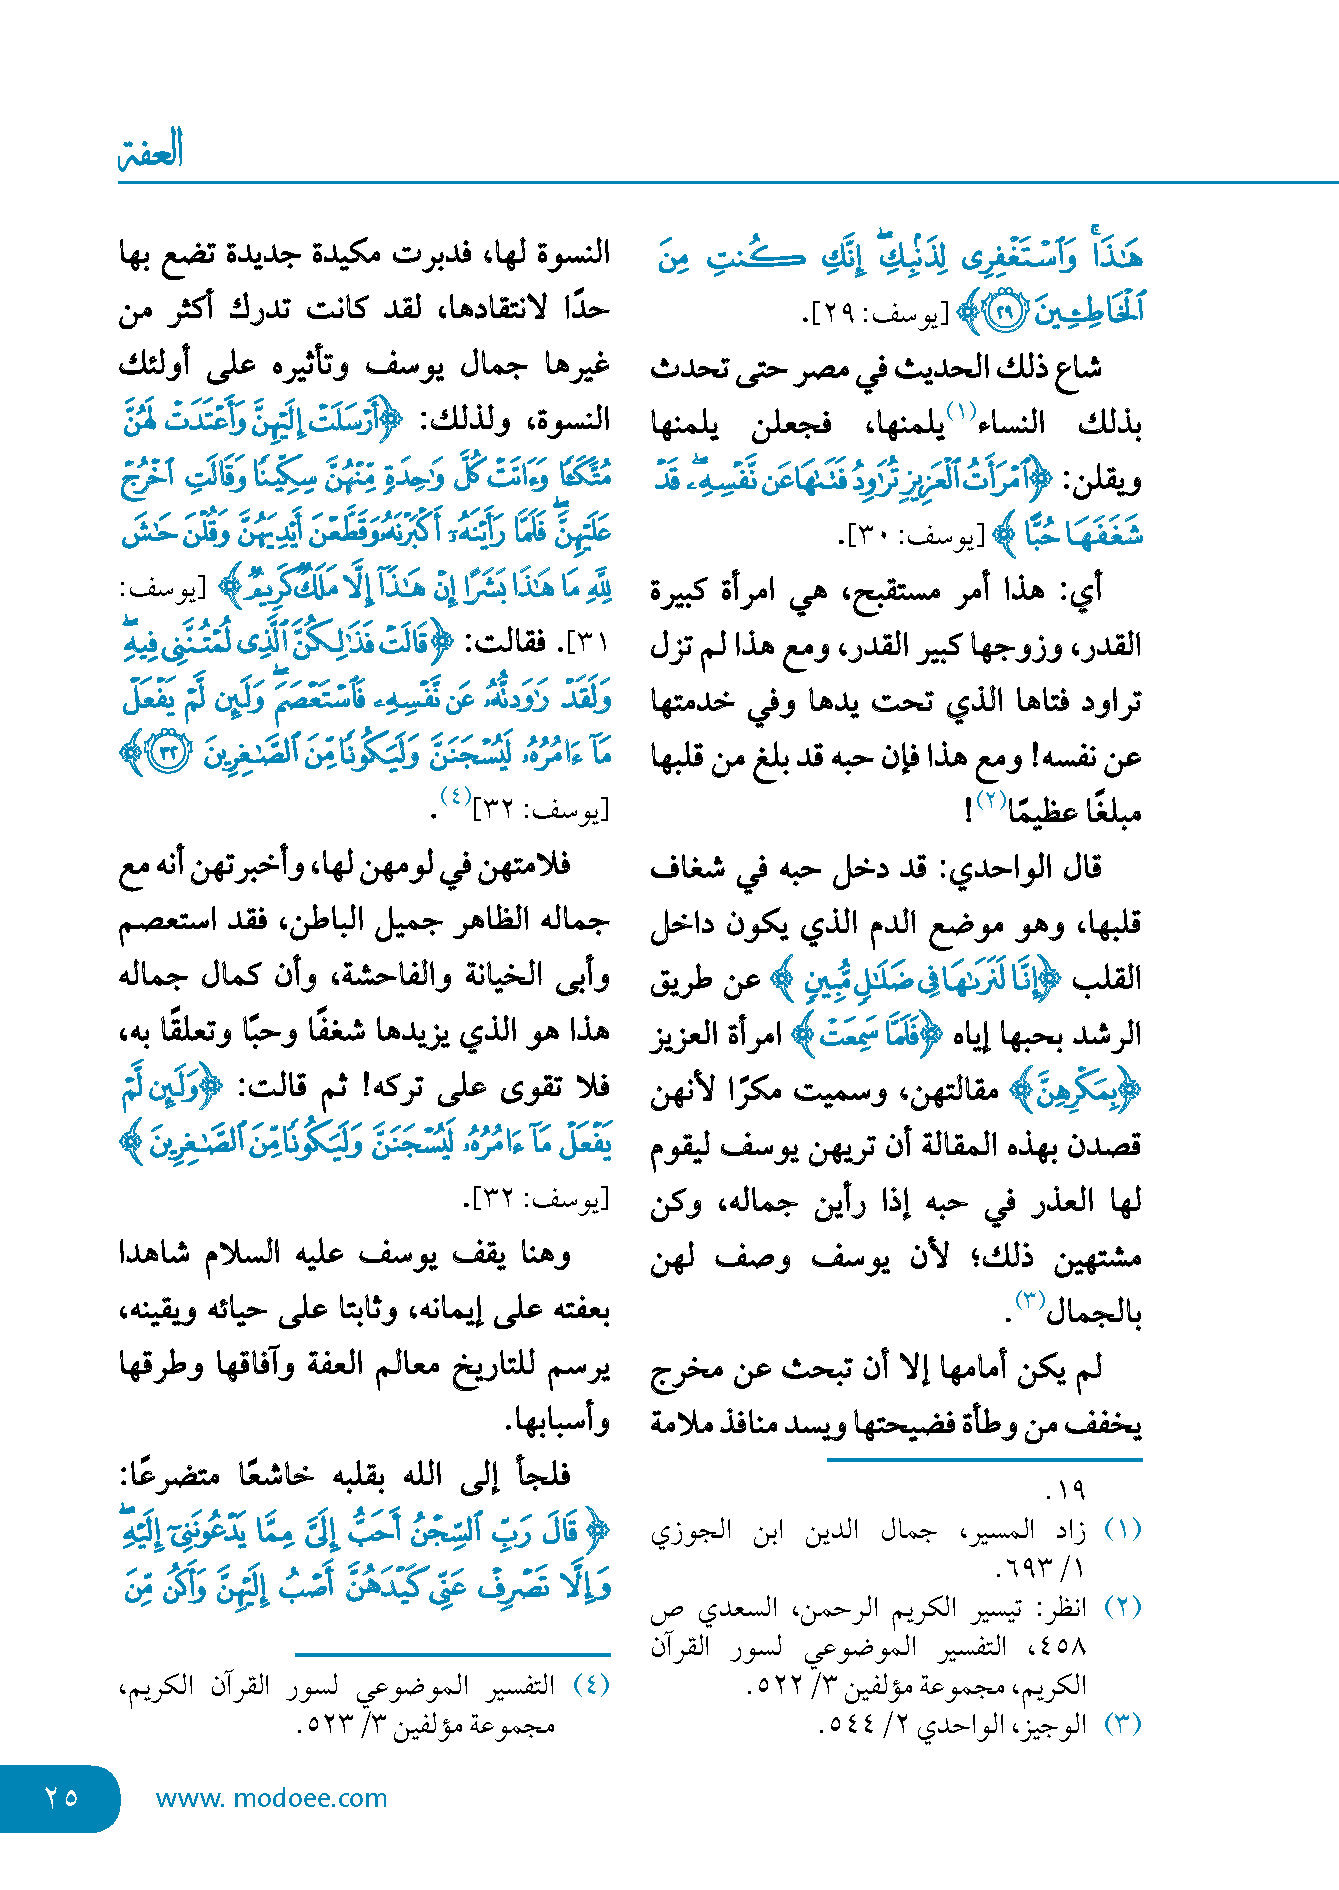 العفة
هَٰذَا ۚ وَاسْتَغْفِرِي لِذَنْبِكِ ۖ إِنَّكِ كُنتِ مِنَ
الْخَاطِئِينَ ﴿٢٩﴾ [يوسف: ٢٩].
شاع ذلك الحديث في مصر حتى تحدث
بذلك النساء(١) يلمنها، فجعلن يلمنها
ويقلن: ﴿امْرَأَتُ الْعَزِيزِ تُرَاوِدُ فَتَاهَا عَن نَّفْسِهِ ۖ قَدْ
شَغَفَهَا حُبًّا ﴾ [يوسف: ٣٠].
أي: هذا أمر مستقبح، هي امرأة كبيرة
القدر، وزوجها كبير القدر، ومع هذا لم تزل
تراود فتاها الذي تحت يدها وفي خدمتها
عن نفسه! ومع هذا فإن حبه قد بلغ من قلبها
مبلغًا عظيمًا(٢)!
قال الواحدي: قد دخل حبه في شغاف
قلبها، وهو موضع الدم الذي يكون داخل
القلب ﴿إِنَّا لَنَرَاهَا فِي ضَلَالٍ مُّبِينٍ ﴾ عن طريق
الرشد بحبها إياه ﴿فَلَمَّا سَمِعَتْ ﴾ امرأة العزيز
﴿بِمَكْرِهِنَّ ﴾ مقالتهن، وسميت مكرًا لأنهن
قصدن بهذه المقالة أن تريهن يوسف ليقوم
لها العذر في حبه إذا رأين جماله، وكن
مشتهين ذلك؛ لأن يوسف وصف لهن
بالجمال(٣).
لم يكن أمامها إلا أن تبحث عن مخرج
يخفف من وطأة فضيحتها ويسد منافذ ملامة
١٩.
(١) زاد المسير، جمال الدين ابن الجوزي
١/ ٦٩٣.
(٢) انظر: تيسير الكريم الرحمن، السعدي ص
٤٥٨، التفسير الموضوعي لسور القرآن
الكريم، مجموعة مؤلفين ٣/ ٥٢٢.
(٣) الوجيز، الواحدي ٢/ ٥٤٤.
النسوة لها، فدبرت مكيدة جديدة تضع بها
حدًا لانتقادها، لقد كانت تدرك أكثر من
غيرها جمال يوسف وتأثيره على أولئك
النسوة، ولذلك: ﴿أَرْسَلَتْ إِلَيْهِنَّ وَأَعْتَدَتْ لَهُنَّ
مُتَّكَأً وَآتَتْ كُلَّ وَاحِدَةٍ مِّنْهُنَّ سِكِّينًا وَقَالَتِ اخْرُجْ
عَلَيْهِنَّ ۖ فَلَمَّا رَأَيْنَهُ أَكْبَرْنَهُ وَقَطَّعْنَ أَيْدِيَهُنَّ وَقُلْنَ حَاشَ
لِلَّهِ مَا هَٰذَا بَشَرًا إِنْ هَٰذَا إِلَّا مَلَكٌ كَرِيمٌ ﴾ [يوسف:
٣١]. فقالت: ﴿قَالَتْ فَذَٰلِكُنَّ الَّذِي لُمْتُنَّنِي فِيهِ ۖ
وَلَقَدْ رَاوَدتُّهُ عَن نَّفْسِهِ فَاسْتَعْصَمَ ۖ وَلَئِن لَّمْ يَفْعَلْ
مَا آمُرُهُ لَيُسْجَنَنَّ وَلَيَكُونًا مِّنَ الصَّاغِرِينَ ﴿٣٢﴾
[يوسف: ٣٢](٤).
فلامتهن في لومهن لها، وأخبرتهن أنه مع
جماله الظاهر جميل الباطن، فقد استعصم
وأبى الخيانة والفاحشة، وأن كمال جماله
هذا هو الذي يزيدها شغفًا وحبًا وتعلقًا به،
فلا تقوى على تركه! ثم قالت: ﴿وَلَئِن لَّمْ
يَفْعَلْ مَا آمُرُهُ لَيُسْجَنَنَّ وَلَيَكُونًا مِّنَ الصَّاغِرِينَ ﴾
[يوسف: ٣٢].
وهنا يقف يوسف عليه السلام شاهدا
بعفته على إيمانه، وثابتا على حيائه ويقينه،
يرسم للتاريخ معالم العفة وآفاقها وطرقها
وأسبابها.
فلجأ إلى الله بقلبه خاشعًا متضرعًا:
﴿ قَالَ رَبِّ السِّجْنُ أَحَبُّ إِلَيَّ مِمَّا يَدْعُونَنِي إِلَيْهِ ۖ
وَإِلَّا تَصْرِفْ عَنِّي كَيْدَهُنَّ أَصْبُ إِلَيْهِنَّ وَأَكُن مِّنَ
(٤) التفسير الموضوعي لسور القرآن الكريم،
مجموعة مؤلفين ٣/ ٥٢٣.
٢٥
www. modoee.com